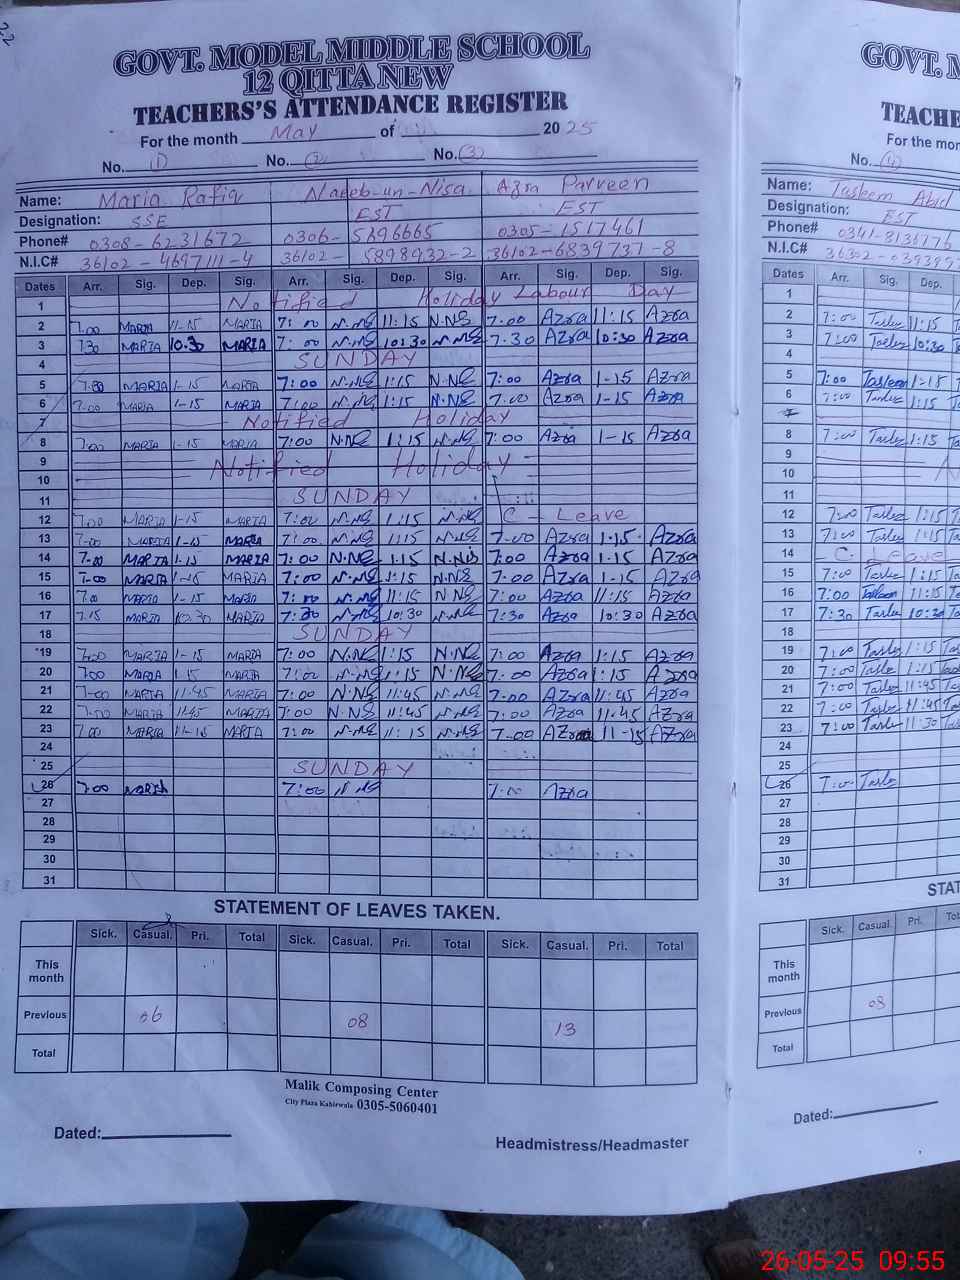 GOVT. MODEL MIDDLE SCHOOL
12 QITTA NEW
TEACHERS'S ATTENDANCE REGISTER
For the month May of 2025
No. (1) No. (2) No. (3)
Name: Maria Rafiq Naeeb-un-Nisa Azra Parveen
Designation: SSE EST EST
Phone# 0308-6231672 0306-5696665 0305-1517461
N.I.C# 36102-4697111-4 36102-5898932-2 36102-6839737-8
Dates Arr. Sig. Dep. Sig. Arr. Sig. Dep. Sig. Arr. Sig. Dep. Sig.
1 Notified Holiday Labour Day
2 7.00 MARIA 11-15 MARIA 7:00 N.NS 11:15 N.NS 7.00 Azra 11:15 Azra
3 7.30 MARIA 10.30 MARIA 7:00 N.NS 10:30 N.NS 7.30 Azra 10:30 Azra
4 SUNDAY
5 7.00 MARIA 1-15 MARIA 7:00 N.NS 1:15 N.NS 7:00 Azra 1-15 Azra
6 7.00 MARIA 1-15 MARIA 7:00 N.NS 1:15 N.NS 7.00 Azra 1-15 Azra
7 Notified Holiday
8 7.00 MARIA 1-15 MARIA 7:00 N.NS 1:15 N.NS 7:00 Azra 1-15 Azra
9
10 Notified Holiday
11 SUNDAY
12 7.00 MARIA 1-15 MARIA 7:00 N.NS 1:15 N.NS C - Leave
13 7-00 MARIA 1-15 MARIA 7:00 N.NS 1:15 N.NS 7-00 Azra 1-15 Azra
14 7-00 MARIA 1-15 MARIA 7:00 N.NS 1:15 N.NS 7:00 Azra 1-15 Azra
15 7-00 MARIA 1-15 MARIA 7:00 N.NS 1:15 N.NS 7-00 Azra 1-15 Azra
16 7.00 MARIA 1-15 MARIA 7:00 N.NS 11:15 N.NS 7:00 Azra 11:15 Azra
17 7.15 MARIA 10.30 MARIA 7:30 N.NS 10:30 N.NS 7:30 Azra 10:30 Azra
18 SUNDAY
19 7.00 MARIA 1-15 MARIA 7:00 N.NS 1:15 N.NS 7:00 Azra 1:15 Azra
20 7.00 MARIA 1.15 MARIA 7:00 N.NS 1:15 N.NS 7.00 Azra 1:15 Azra
21 7-00 MARIA 11.45 MARIA 7:00 N.NS 11:45 N.NS 7.00 Azra 11:45 Azra
22 7.00 MARIA 11.45 MARIA 7:00 N.NS 11:45 N.NS 7:00 Azra 11.45 Azra
23 7.00 MARIA 11-15 MARIA 7:00 N.NS 11:15 N.NS 7-00 Azra 11-15 Azra
24
25 SUNDAY
26 7.00 MARIA 7:00 N.NS 7.00 Azra
27
28
29
30
31
STATEMENT OF LEAVES TAKEN.
Sick. Casual. Pri. Total Sick. Casual. Pri. Total Sick. Casual. Pri. Total
This month
Previous 06 08 13
Total
Malik Composing Center
City Plaza Kabirwala 0305-5060401
Dated:
Headmistress/Headmaster
GOVT. M
TEACHE
For the mon
No. (4)
Name: Tasleem Abid
Designation: EST
Phone# 0341-8131776
N.I.C#
Dates Arr. Sig. Dep.
1
2 7:00 Taslee 11:15
3 7:00 Taslee 10:30
4
5 7:00 Tasleem 1:15
6 7:00 Taslee 1:15
7
8 7:00 Taslee 1:15
9
10
11
12 7:00 Taslee 1:15
13 7:00 Taslee 1:15
14 C. Leave
15 7:00 Taslee 1:15
16 7:00 Tasleem 11:15
17 7:30 Taslee 10:30
18
19 7:00 Taslee 1:15
20 7:00 Taslee 1:15
21 7:00 Taslee 11:45
22 7:00 Taslee 11:45
23 7:00 Taslee 11:30
24
25
26 7:00 Taslee
27
28
29
30
31
STAT
Sick. Casual. Pri.
This month
Previous 08
Total
Dated:
26-05-25 09:55